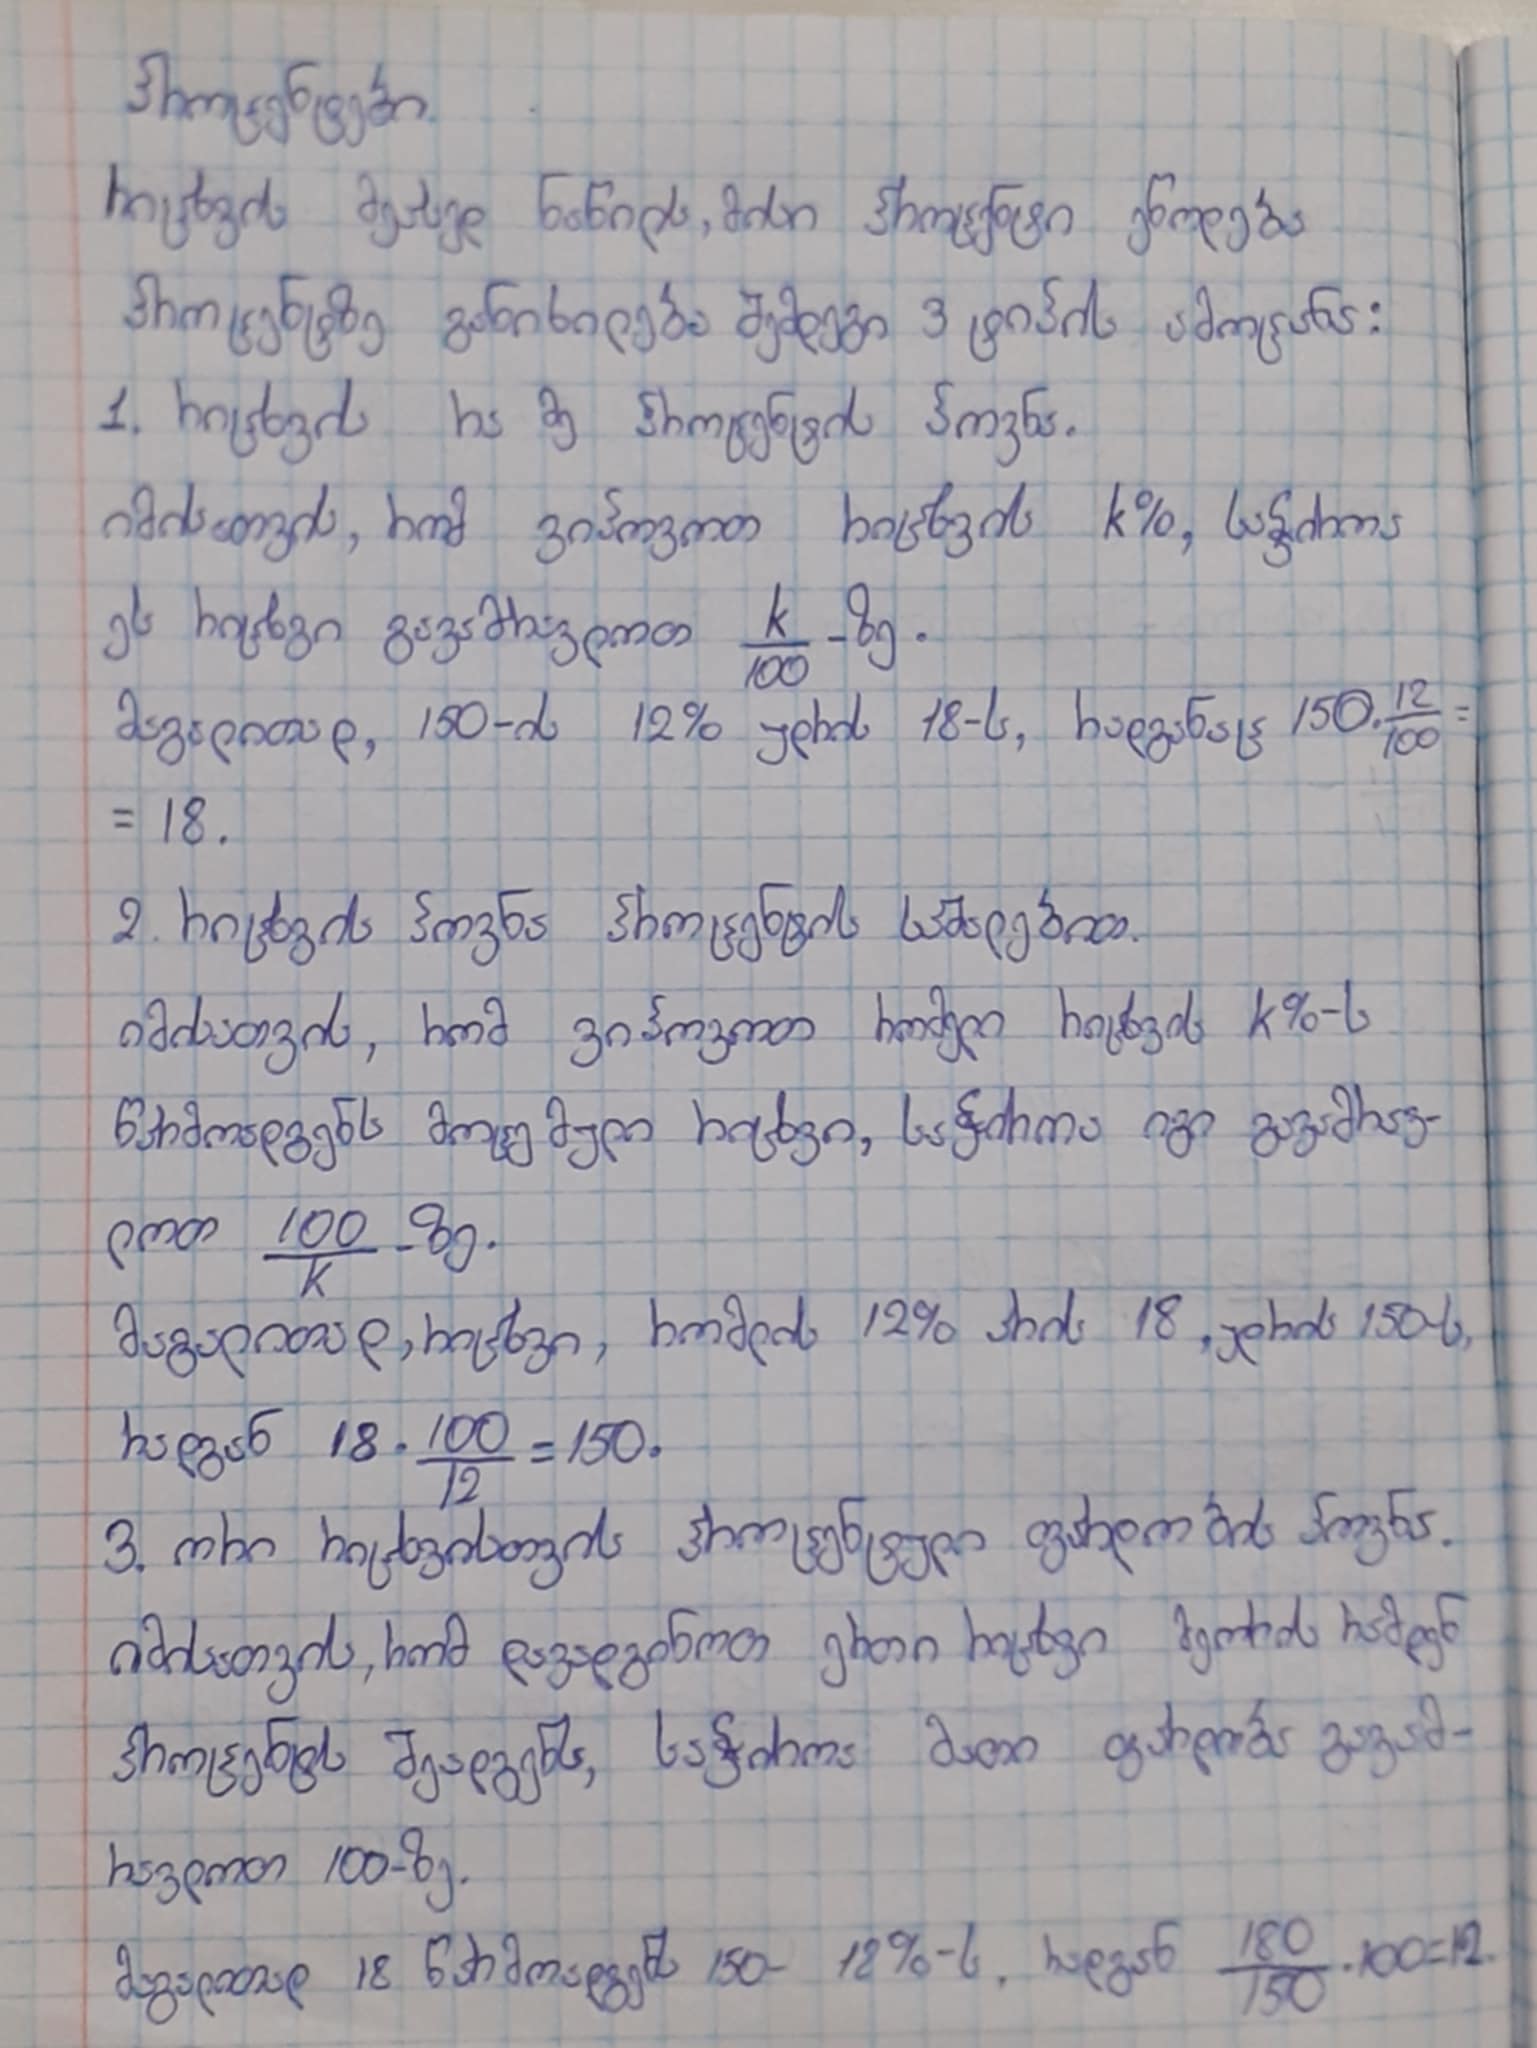 პროცენტები.
რიცხვის მეასედ ნაწილს, მისი პროცენტი ეწოდება
პროცენტზე განიხილება შემდეგი 3 ტიპის ამოცანა:
1. რიცხვის რა მე პროცენტის პოვნა.
იმისათვის, რომ ვიპოვოთ რიცხვის k%, საჭიროა
ეს რიცხვი გავამრავლოთ k/100-ზე.
მაგალითად, 150-ის 12% უდრის 18-ს, რადგანაც 150·12/100=
=18.
2. რიცხვის პოვნა პროცენტის საშალებით.
იმისათვის, რომ ვიპოვოთ რომელი რიცხვის k%-ს
წარმოადგენს მოცემული რიცხვი, საჭიროა იგი გავამრავ-
ლოთ 100/k-ზე.
მაგალითად, რიცხვი, რომლის 12% არის 18, უდრის 150-ს,
რადგან 18·100/12=150.
3. ორი რიცხვისთვის პროცენტული ფარდობის პოვნა.
იმისათვის, რომ დავადგინოთ ერთი რიცხვი მეორის რამდენ
პროცენტს შეადგენს, საჭიროა მათი ფარდობა გავამ-
რავლოთ 100-ზე.
მაგალითად 18 წარმოადგენს 150- 12%-ს, რადგან 180/150·100=12.